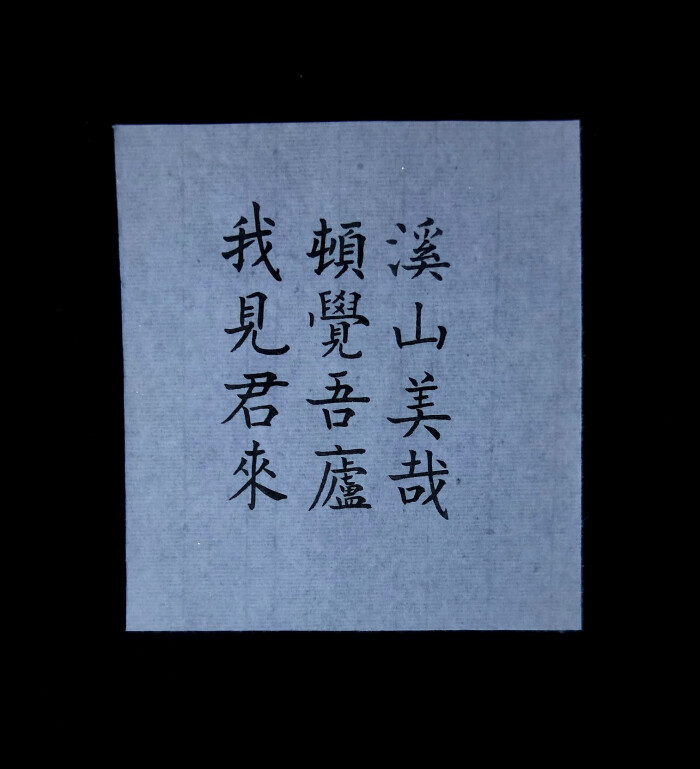 溪山美哉
頓覺吾廬
我見君來